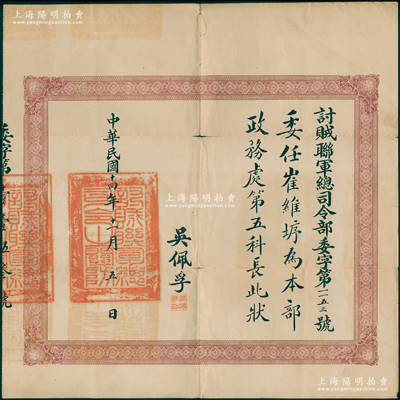 上海陽明拍賣
www.yangmingauction.com
討賊聯軍總司令部委字第一五三號
委任崔維堮為本部
政務處第五科長此狀
吳佩孚
中華民國十四年十一月五日
委字第
號
上海陽明拍賣
www.yangmingauction.com